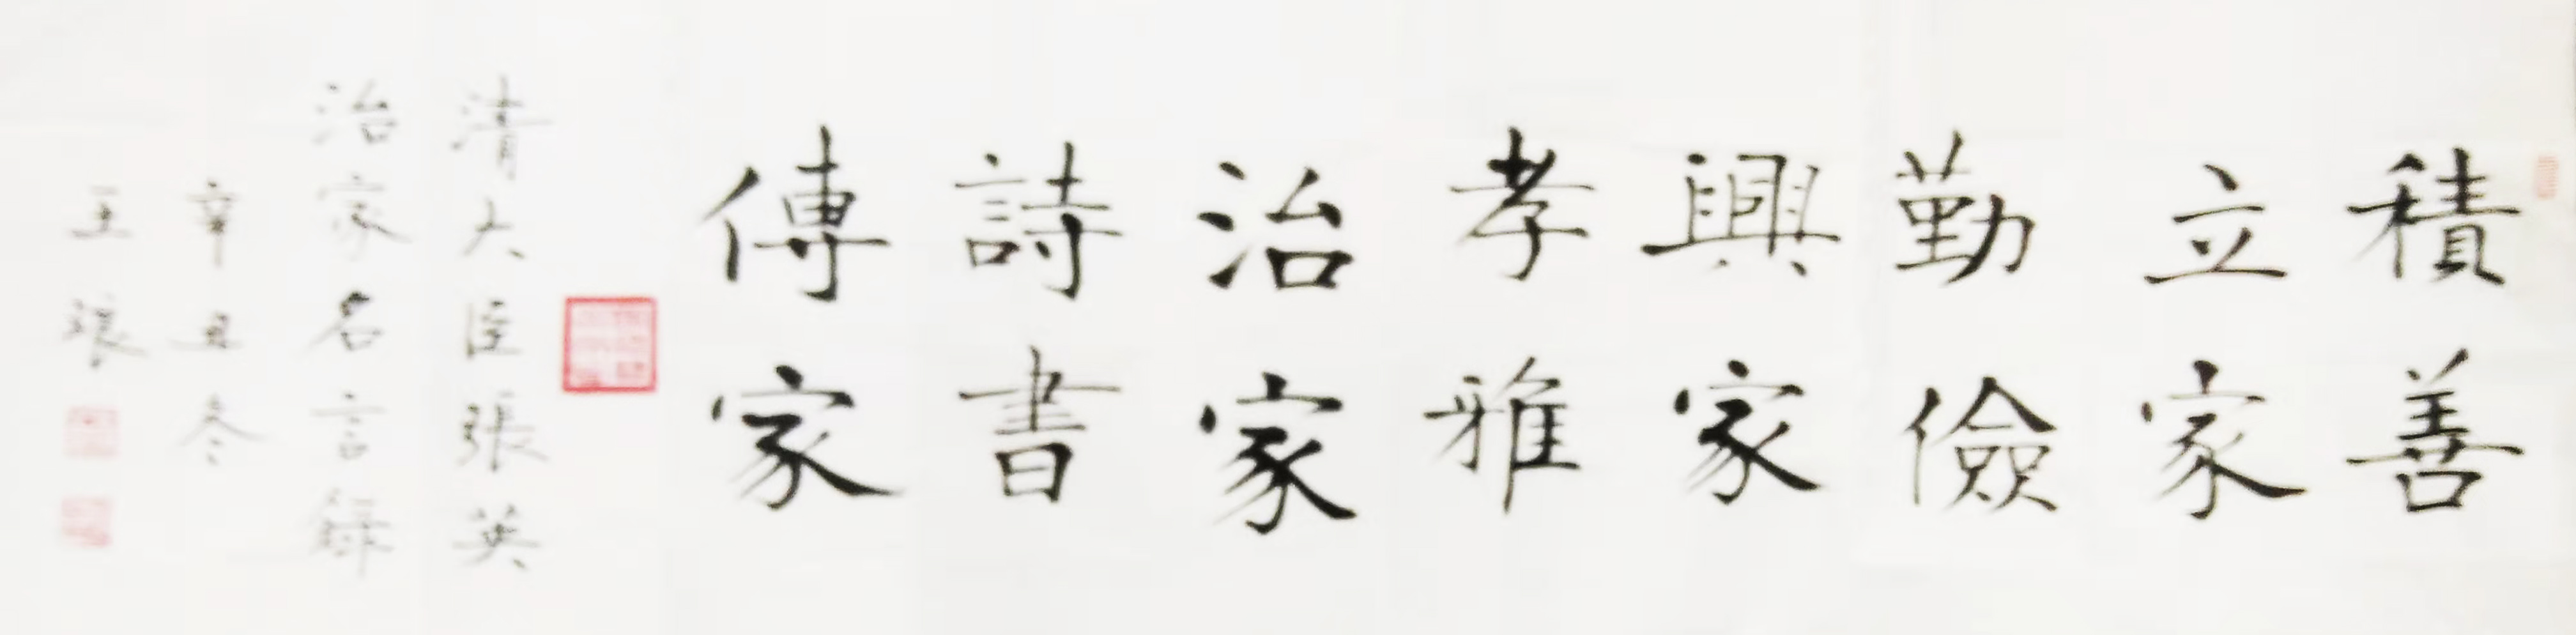 積善
立家
勤儉
興家
孝雅
治家
詩書
傳家
清大臣張英
治家名言録
辛丑冬